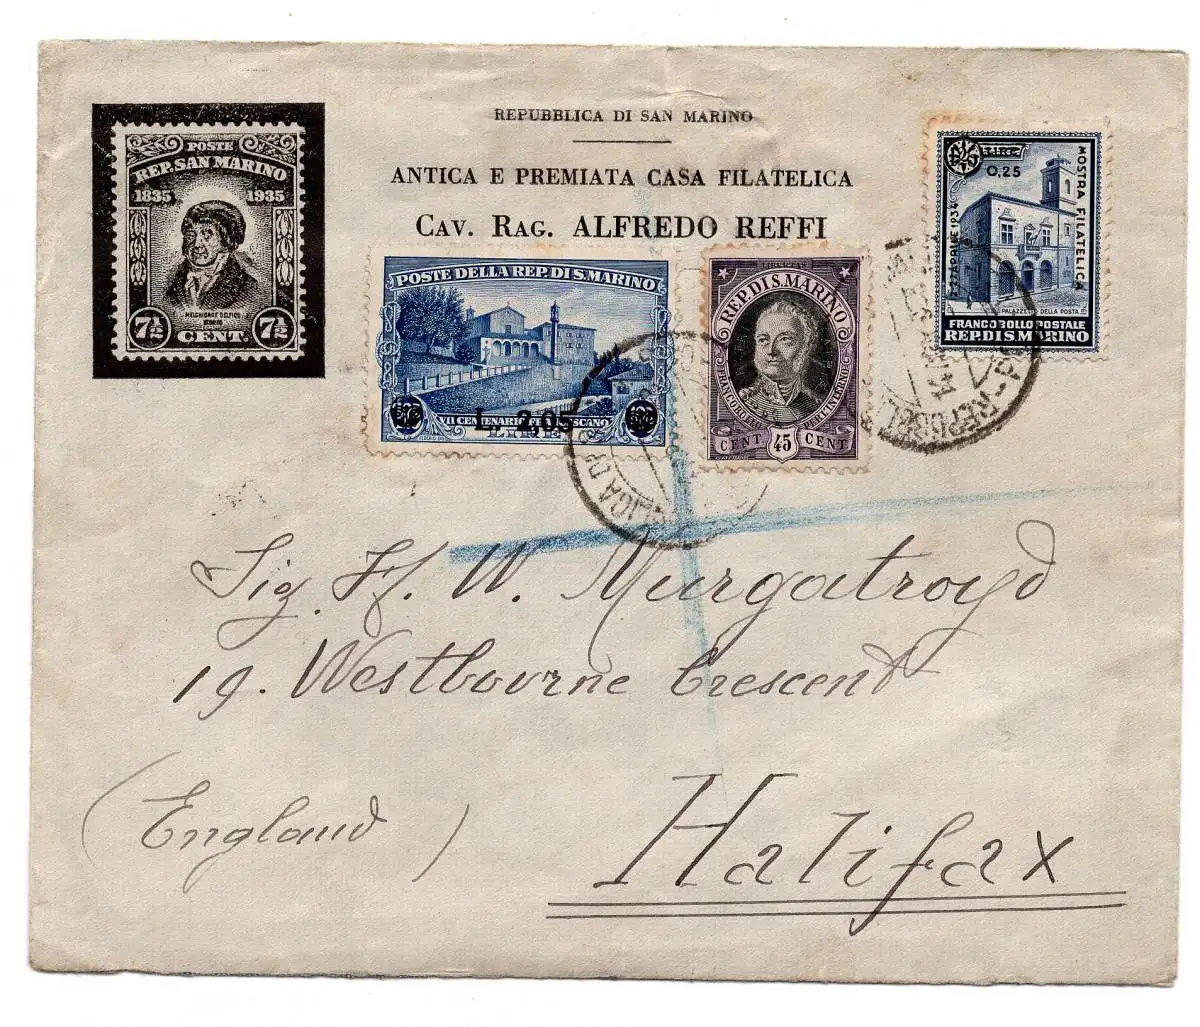 REPUBBLICA DI SAN MARINO
ANTICA E PREMIATA CASA FILATELICA
CAV. RAG. ALFREDO REFFI
POSTE
REP. SAN MARINO
1835 1935
MELCHIORRE DELFICO
7½ CENT. 7½
POSTE DELLA REP. DI S. MARINO
VII CENTENARIO FRANCESCANO
L. 2,05
REP. DI S. MARINO
CENT. 45 CENT.
LIRE
0,25
MOSTRA FILATELICA
APRILE 1934
PALAZZETTO DELLA POSTA
FRANCOBOLLO POSTALE
REP. DI S. MARINO
Sig. H. W. Murgatroyd
19. Westbourne Crescent
(England)
Halifax